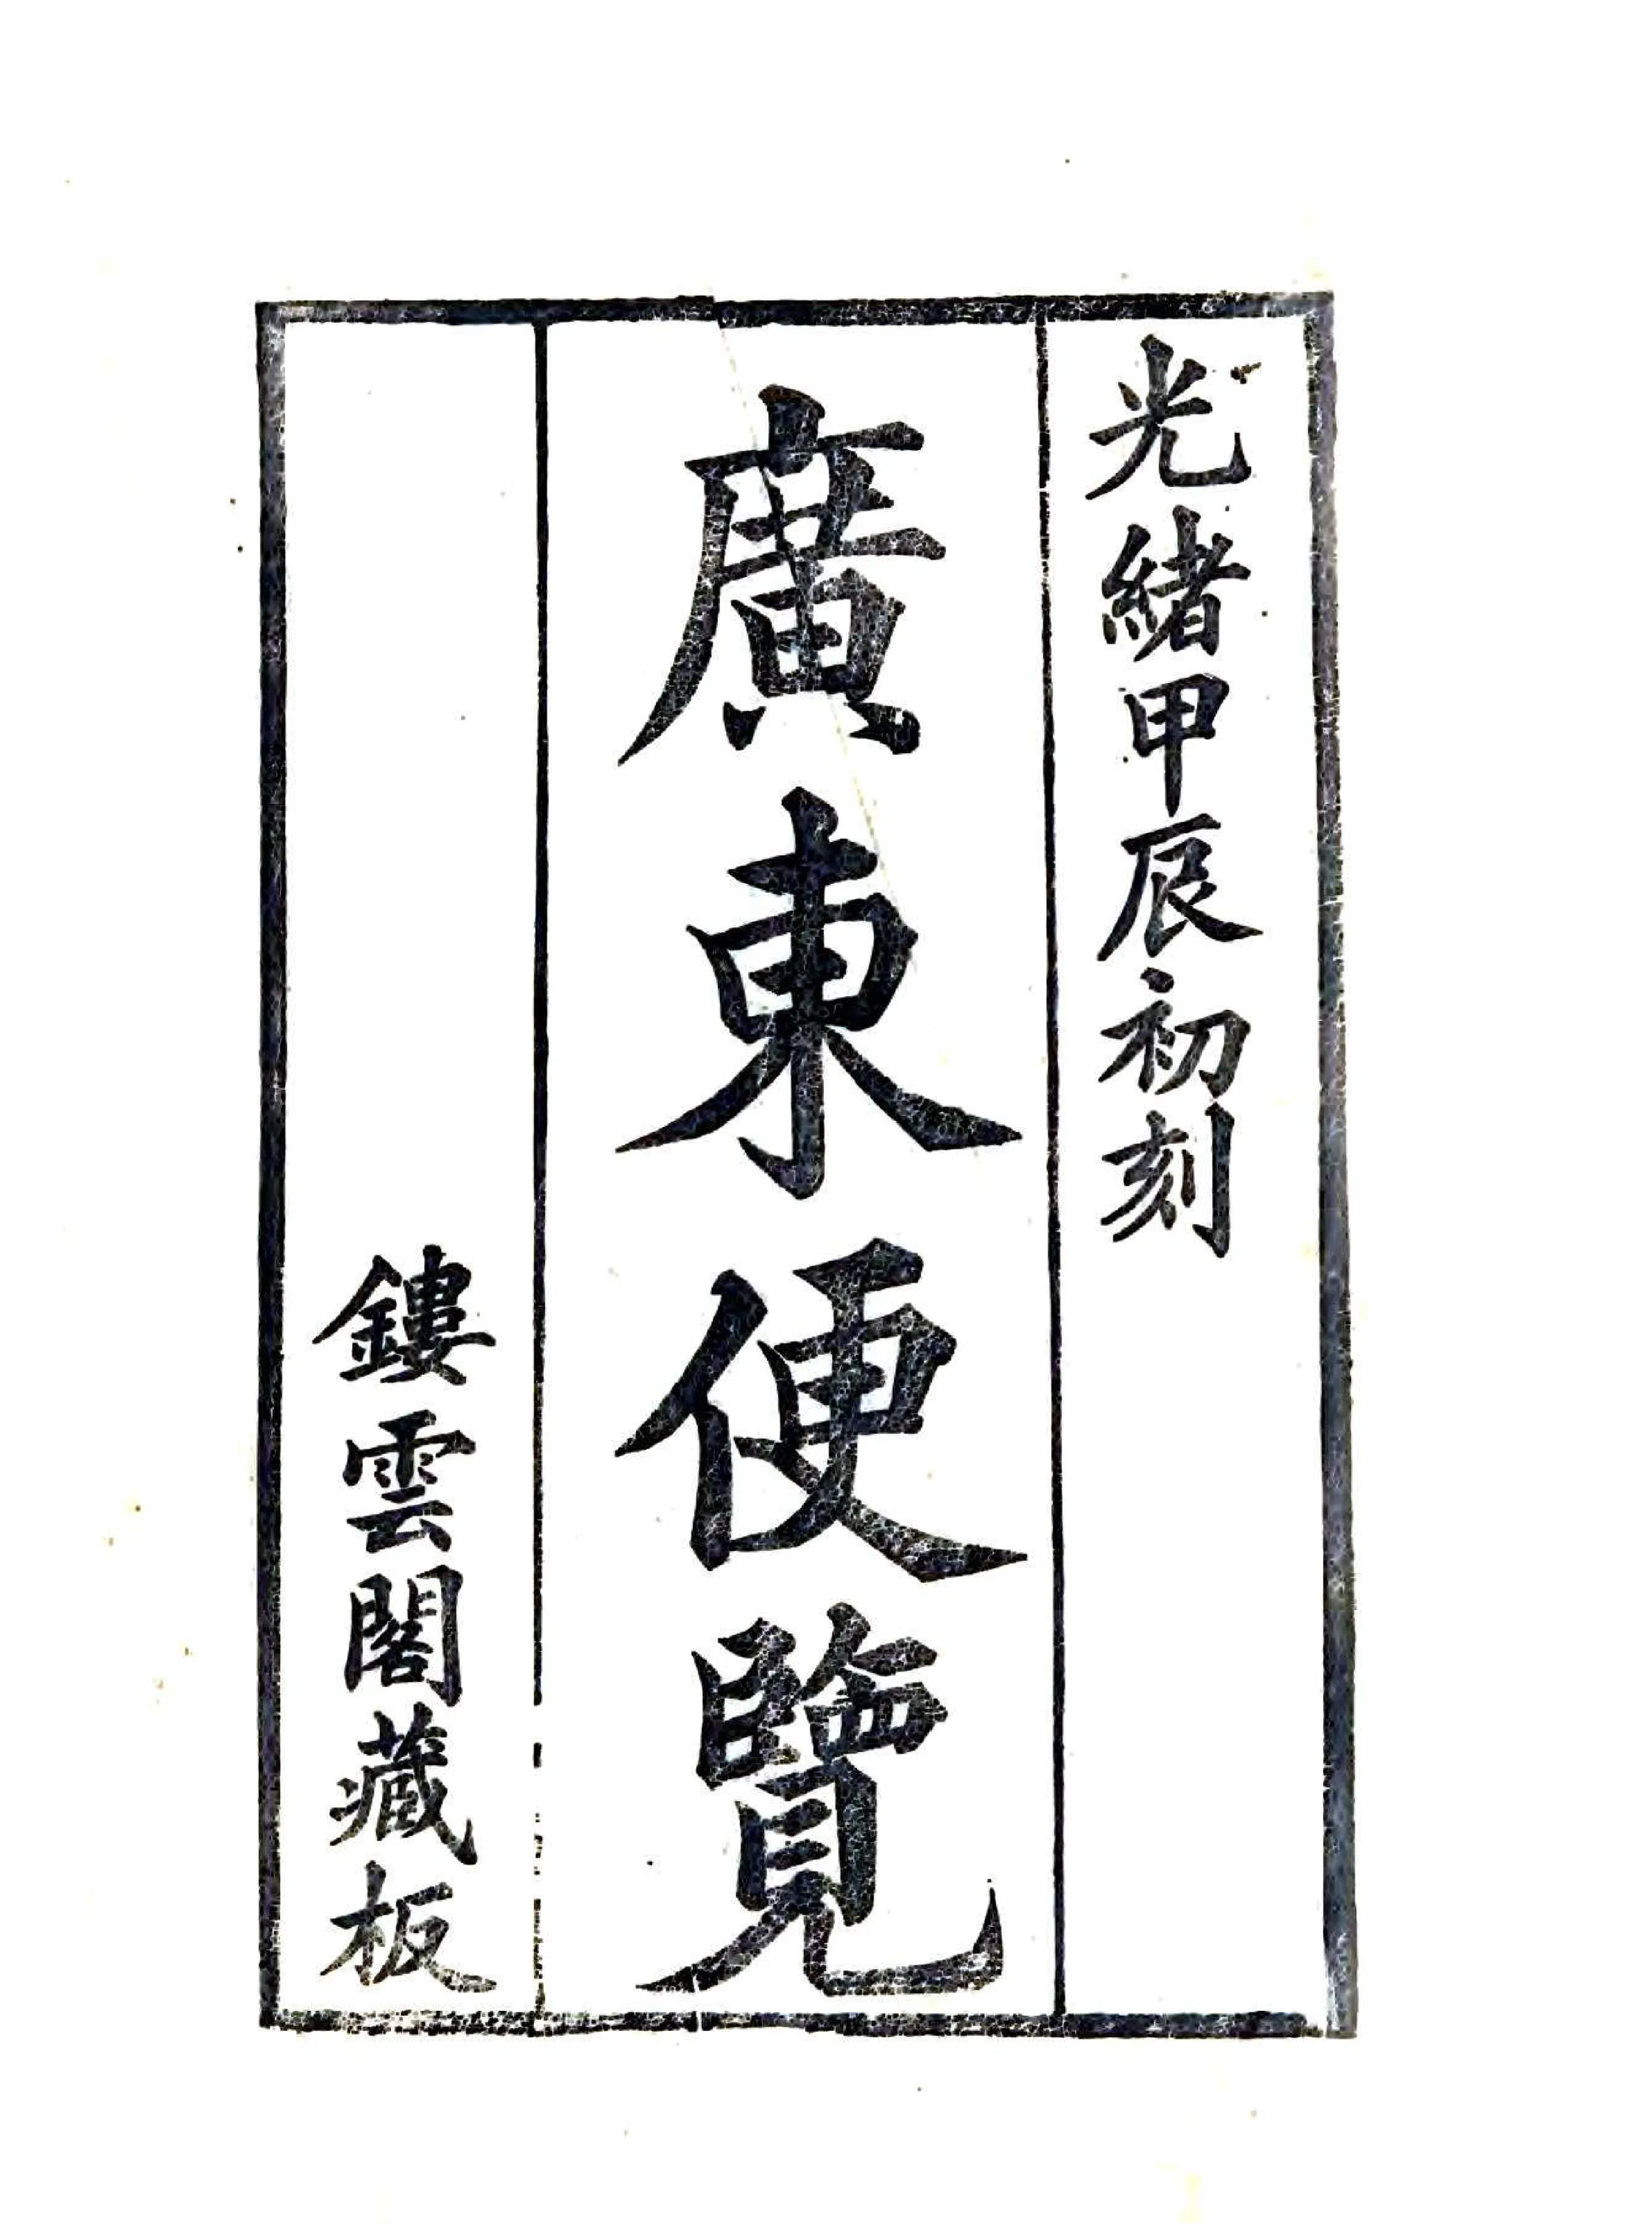 光緒甲辰初刻
廣東便覽
鏤雲閣藏板